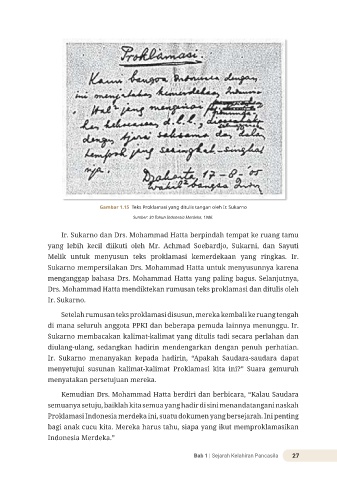 Proklamasi
Kami bangsa Indonesia dengan
ini menjatakan kemerdekaan
Hal2 jang mengenai
kekoeasaan d.l.l.,
dengan tjara saksama dan dalam
tempoh jang sesingkat-singkat
nja.
Djakarta 17-8-'05
Wakil2 bangsa
Gambar 1.15 Teks Proklamasi yang ditulis tangan oleh Ir. Sukarno
Sumber: 30 Tahun Indonesia Merdeka,
Ir. Sukarno dan Drs. Mohammad Hatta berpindah tempat ke ruang tamu
yang lebih kecil diikuti oleh Mr. Achmad Soebardjo, Sukarni, dan Sayuti
Melik untuk menyusun teks proklamasi kemerdekaan yang ringkas. Ir.
Sukarno mempersilakan Drs. Mohammad Hatta untuk menyusunnya karena
menganggap bahasa Drs. Mohammad Hatta yang paling bagus. Selanjutnya,
Drs. Mohammad Hatta mendiktekan rumusan teks proklamasi dan ditulis oleh
Ir. Sukarno.
Setelah rumusan teks proklamasi disusun, mereka kembali ke ruang tengah
di mana seluruh anggota PPKI dan beberapa pemuda lainnya menunggu. Ir.
Sukarno membacakan kalimat-kalimat yang ditulis tadi secara perlahan dan
diulang-ulang, sedangkan hadirin mendengarkan dengan penuh perhatian.
Ir. Sukarno menanyakan kepada hadirin, “Apakah Saudara-saudara dapat
menyetujui susunan kalimat-kalimat Proklamasi kita ini?” Suara gemuruh
menyatakan persetujuan mereka.
Kemudian Drs. Mohammad Hatta berdiri dan berbicara, “Kalau Saudara
semuanya setuju, baiklah kita semua yang hadir di sini menandatangani naskah
Proklamasi Indonesia merdeka ini, suatu dokumen yang bersejarah. Ini penting
bagi anak cucu kita. Mereka harus tahu, siapa yang ikut memproklamasikan
Indonesia Merdeka.”
Bab 1 | Sejarah Kelahiran Pancasila 27